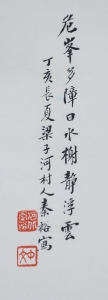 危峯多障日水樹靜浮雲
丁亥長夏梁子河村人秦谿寫